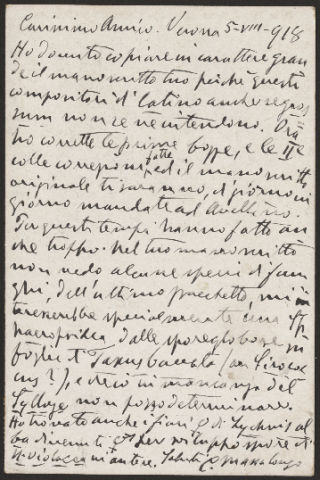 Carissimo Amico. Verona 5-VIII-918
Ho dovuto copiare in carattere gran
de il manoscritto tuo perché questi
compositori di latino anche
sum non se ne intendono.
tro corrette le prime bozze, e le IIe
colle correzioni fatte ed il manoscritto
originale ti saranno, di giorno in
giorno mandate ad Avellino.
Per questi tempi hanno fatto an
che troppo. Nel tuo manoscritto
non vedo alcune specie di fun
ghi, dell'ultimo pacchetto, mi in
teresserebbe specialmente una
dalle spore globose in
foglie di Taxus baccata (an
?), che io in mancanza del
Sylloge non posso determinare.
Ho trovato anche i fiori di Lychnis al
ba divenuti per sviluppo spore di
U. violacea in antere. Saluti C. Massalongo